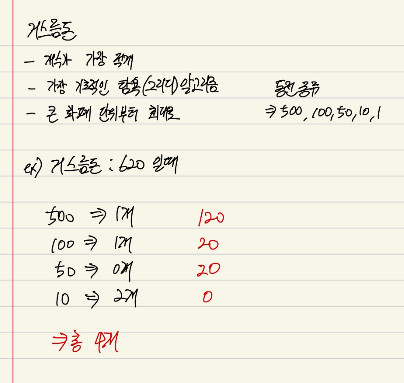 거스름돈
- 개수가 가장 적게
- 가장 기본적인 탐욕(그리디) 알고리즘
동전 종류
- 큰 화폐 단위부터 최대로
⇒ 500, 100, 50, 10, 1
ex) 거스름돈 : 620 일때
500 ⇒ 1개 120
100 ⇒ 1개 20
50 ⇒ 0개 20
10 ⇒ 2개 0
⇒ 총 4개